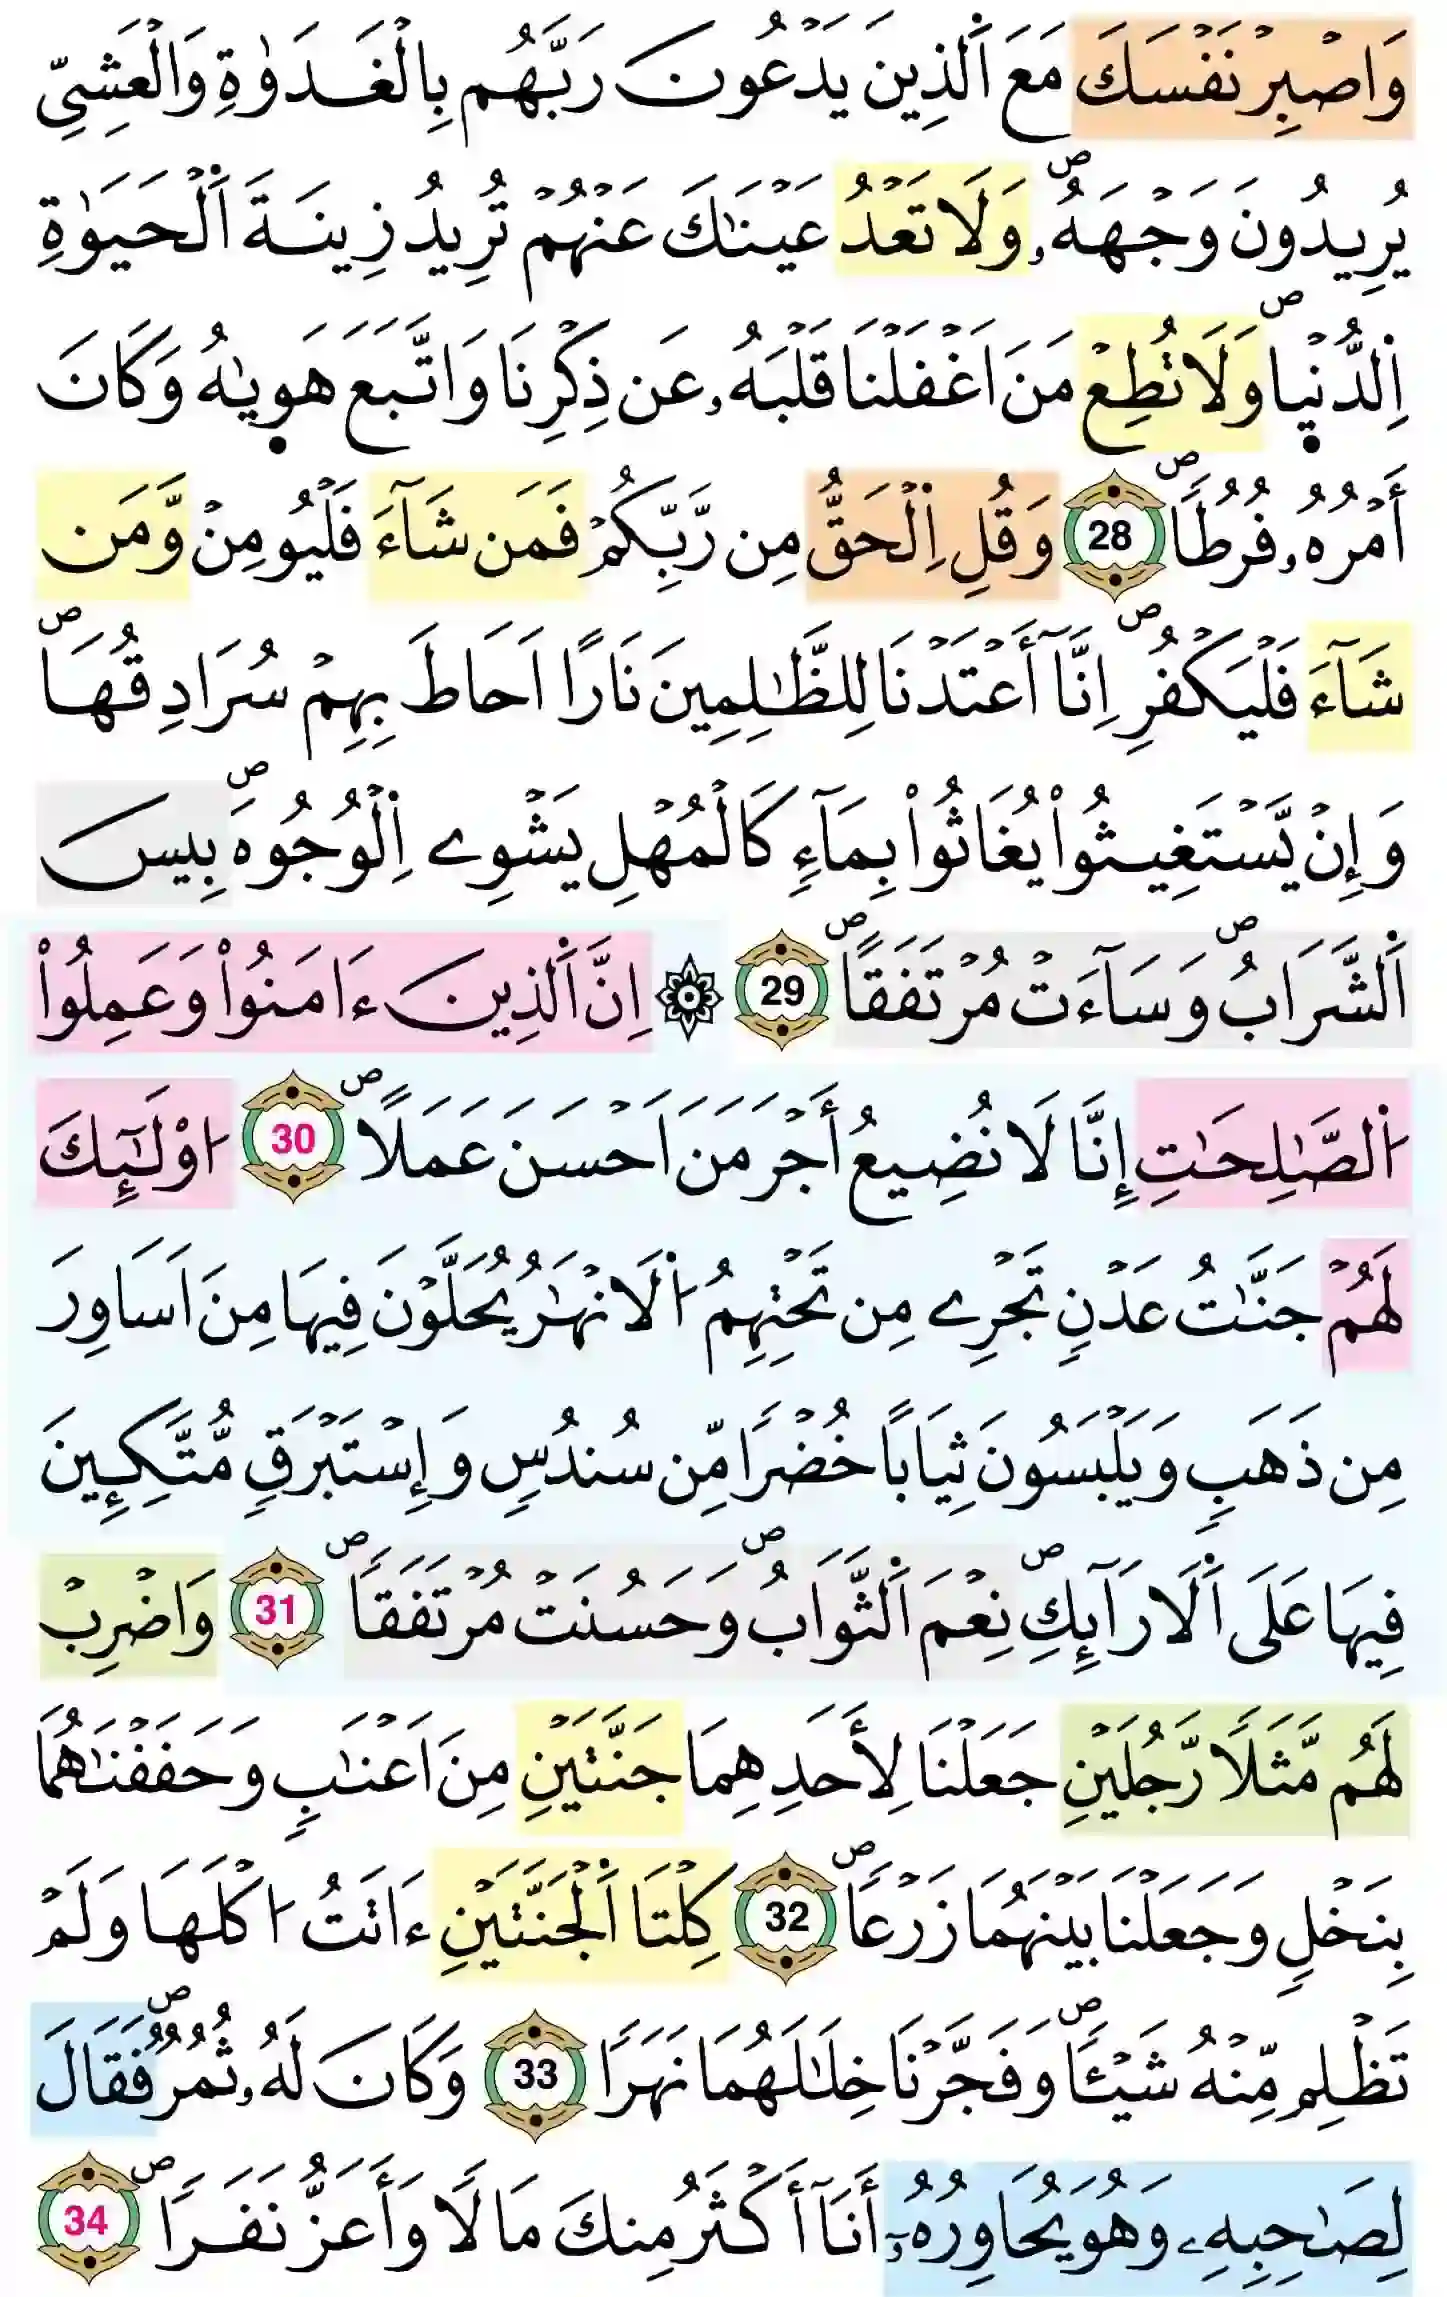 وَاصْبِرْ نَفْسَكَ مَعَ اَ۬لذِينَ يَدْعُونَ رَبَّهُم بِالْغَدَوٰةِ وَالْعَشِيِّ
يُرِيدُونَ وَجْهَهُۥۖ وَلَا تَعْدُ عَيْنَٰكَ عَنْهُمْ تُرِيدُ زِينَةَ اَ۬لْحَيَوٰةِ
اِ۬لدُّنْي۪اۖ وَلَا تُطِعْ مَنَ اَغْفَلْنَا قَلْبَهُۥ عَن ذِكْرِنَا وَاتَّبَعَ هَو۪يٰهُ وَكَانَ
أَمْرُهُۥ فُرُطاٗۖ 28 وَقُلِ اِ۬لْحَقُّ مِن رَّبِّكُمْ فَمَن شَآءَ فَلْيُومِنْ وَّمَن
شَآءَ فَلْيَكْفُرِۖ اِنَّآ أَعْتَدْنَا لِلظَّٰلِمِينَ نَاراً اَحَاطَ بِهِمْ سُرَادِقُهَاۖ
وَإِنْ يَّسْتَغِيثُواْ يُغَاثُواْ بِمَآءٖ كَالْمُهْلِ يَشْوِے اِ۬لْوُجُوهَۖ بِيسَ
اَ۬لشَّرَابُۖ وَسَآءَتْ مُرْتَفَقاًۖ 29 ۞ اِنَّ اَ۬لذِينَ ءَامَنُواْ وَعَمِلُواْ
اُ۬لصَّٰلِحَٰتِ إِنَّا لَا نُضِيعُ أَجْرَ مَنَ اَحْسَنَ عَمَلاًۖ 30 اُوْلَٰٓئِكَ
لَهُمْ جَنَّٰتُ عَدْنٖ تَجْرِے مِن تَحْتِهِمُ اُ۬لَانْهَٰرُ يُحَلَّوْنَ فِيهَا مِنَ اَسَاوِرَ
مِن ذَهَبٖ وَيَلْبَسُونَ ثِيَاباً خُضْراٗ مِّن سُندُسٖ وَإِسْتَبْرَقٖ مُّتَّكِـِٕينَ
فِيهَا عَلَي اَ۬لَارَآئِكِۖ نِعْمَ اَ۬لثَّوَابُۖ وَحَسُنَتْ مُرْتَفَقاٗۖ 31 وَاضْرِبْ
لَهُم مَّثَلاٗ رَّجُلَيْنِ جَعَلْنَا لِأَحَدِهِمَا جَنَّتَيْنِ مِنَ اَعْنَٰبٖ وَحَفَفْنَٰهُمَا
بِنَخْلٖ وَجَعَلْنَا بَيْنَهُمَا زَرْعاٗۖ 32 كِلْتَا اَ۬لْجَنَّتَيْنِ ءَاتَتُ اكْلَهَا وَلَمْ
تَظْلِم مِّنْهُ شَيْـٔاٗۖ وَفَجَّرْنَا خِلَٰلَهُمَا نَهَراٗ 33 وَكَانَ لَهُۥ ثُمُرٞۖ فَقَالَ
لِصَٰحِبِهِۦ وَهُوَ يُحَاوِرُهُۥٓ أَنَآ أَكْثَرُ مِنكَ مَالاٗ وَأَعَزُّ نَفَراٗۖ 34